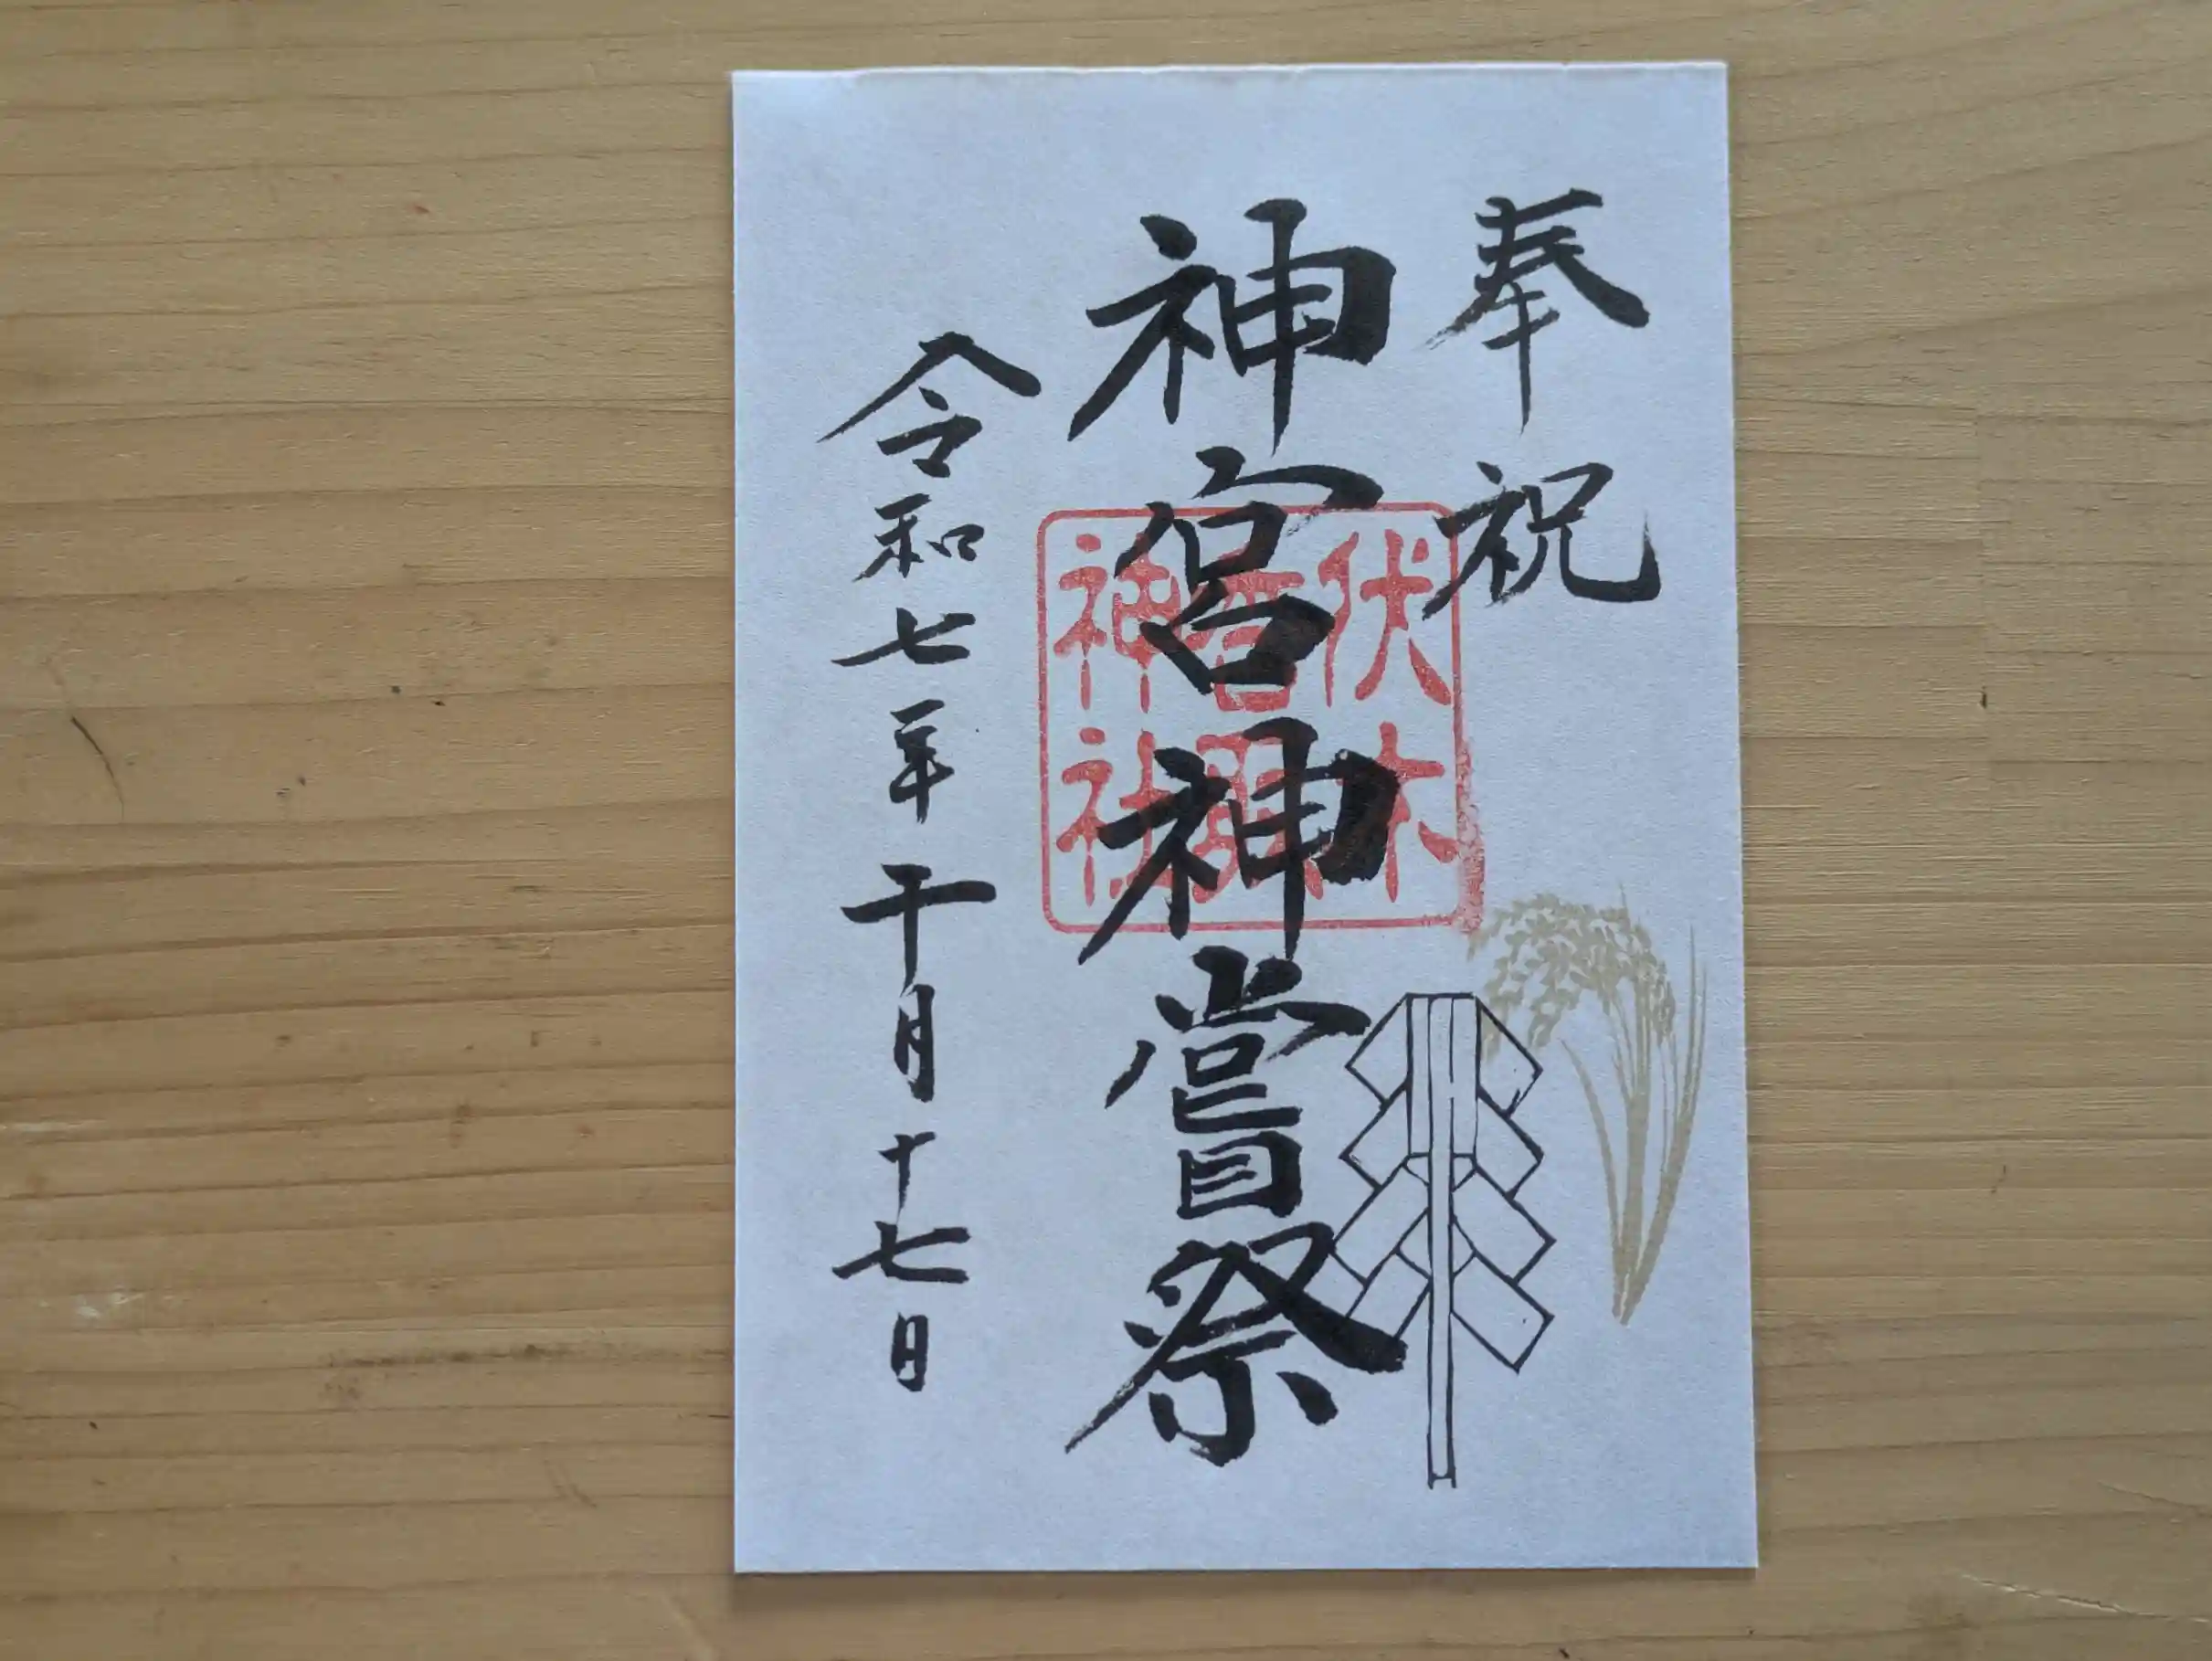 奉祝
神宮神嘗祭
令和七年十月十七日
伏木
香取
神社